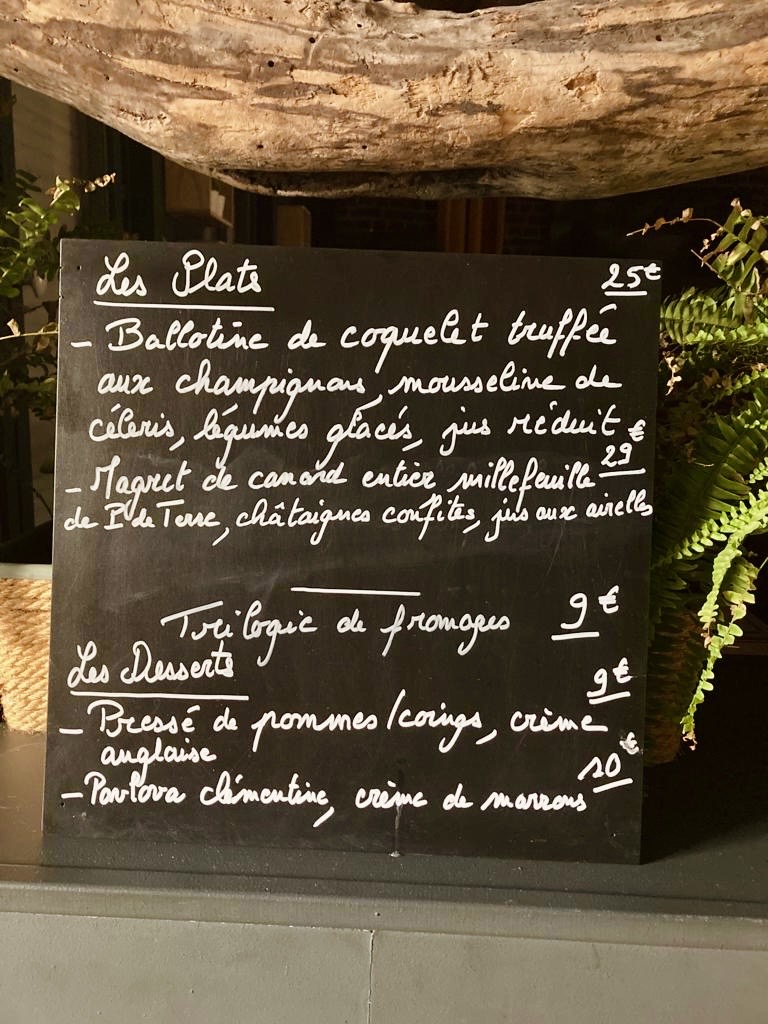 Les Plats 25€
- Ballotine de coquelet truffée
aux champignons, mousseline de
céleris, légumes glacés, jus réduit
- Magret de canard entier millefeuille 29€
de P de Terre, châtaignes confites, jus aux airelles
Trilogie de fromages 9€
Les Desserts 9€
- Pressé de pommes/coings, crème
anglaise
- Pavlova clémentine, crème de marrons 10€